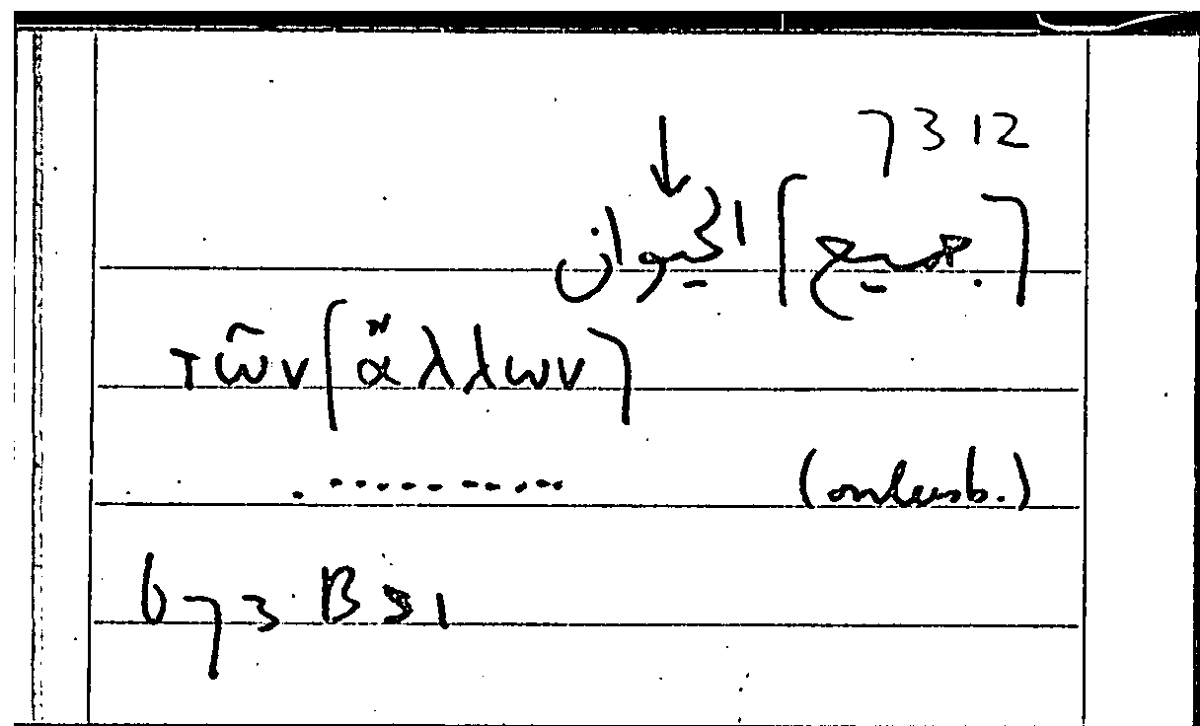 7312
↓
[جميع] الحيوان
τῶν [ἄλλων]
. .........
(onleesb.)
673 B 31